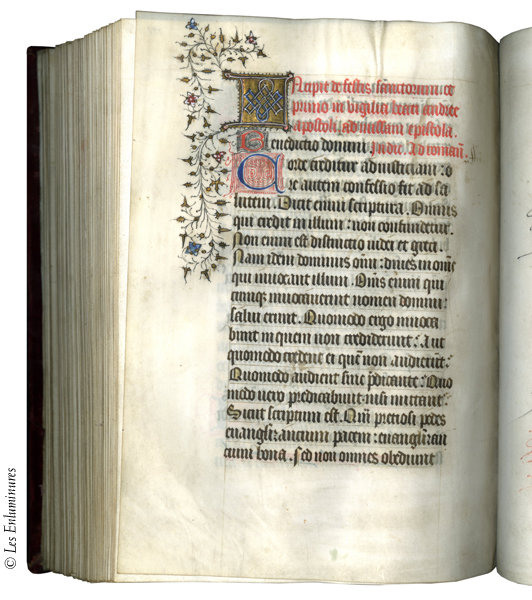 Incipit de festis sanctorum. et
primo in vigilia beati andree
apostoli. ad missam epistola.
Benedictio domini. In die. Ad romanos.
Corde creditur ad iusticiam: o
re autem confessio fit ad sa
lutem. Dicit enim scriptura. Omnis
qui credit in illum: non confundetur.
Non enim est distinctio iudei et greci.
Nam idem dominus omnium: dives in omnes
qui invocant illum. Omnis enim qui
cumque invocaverit nomen domini:
salvus erit. Quomodo ergo invoca
bunt in quem non crediderunt: Aut
quomodo credent ei quem non audierunt:
Quomodo audient sine predicante: Quo
modo vero predicabunt nisi mittantur:
Sicut scriptum est. Quam preciosi pedes
euangelizantium pacem: euangelizan
cium bona. Sed non omnes obediunt
© Les Enluminures